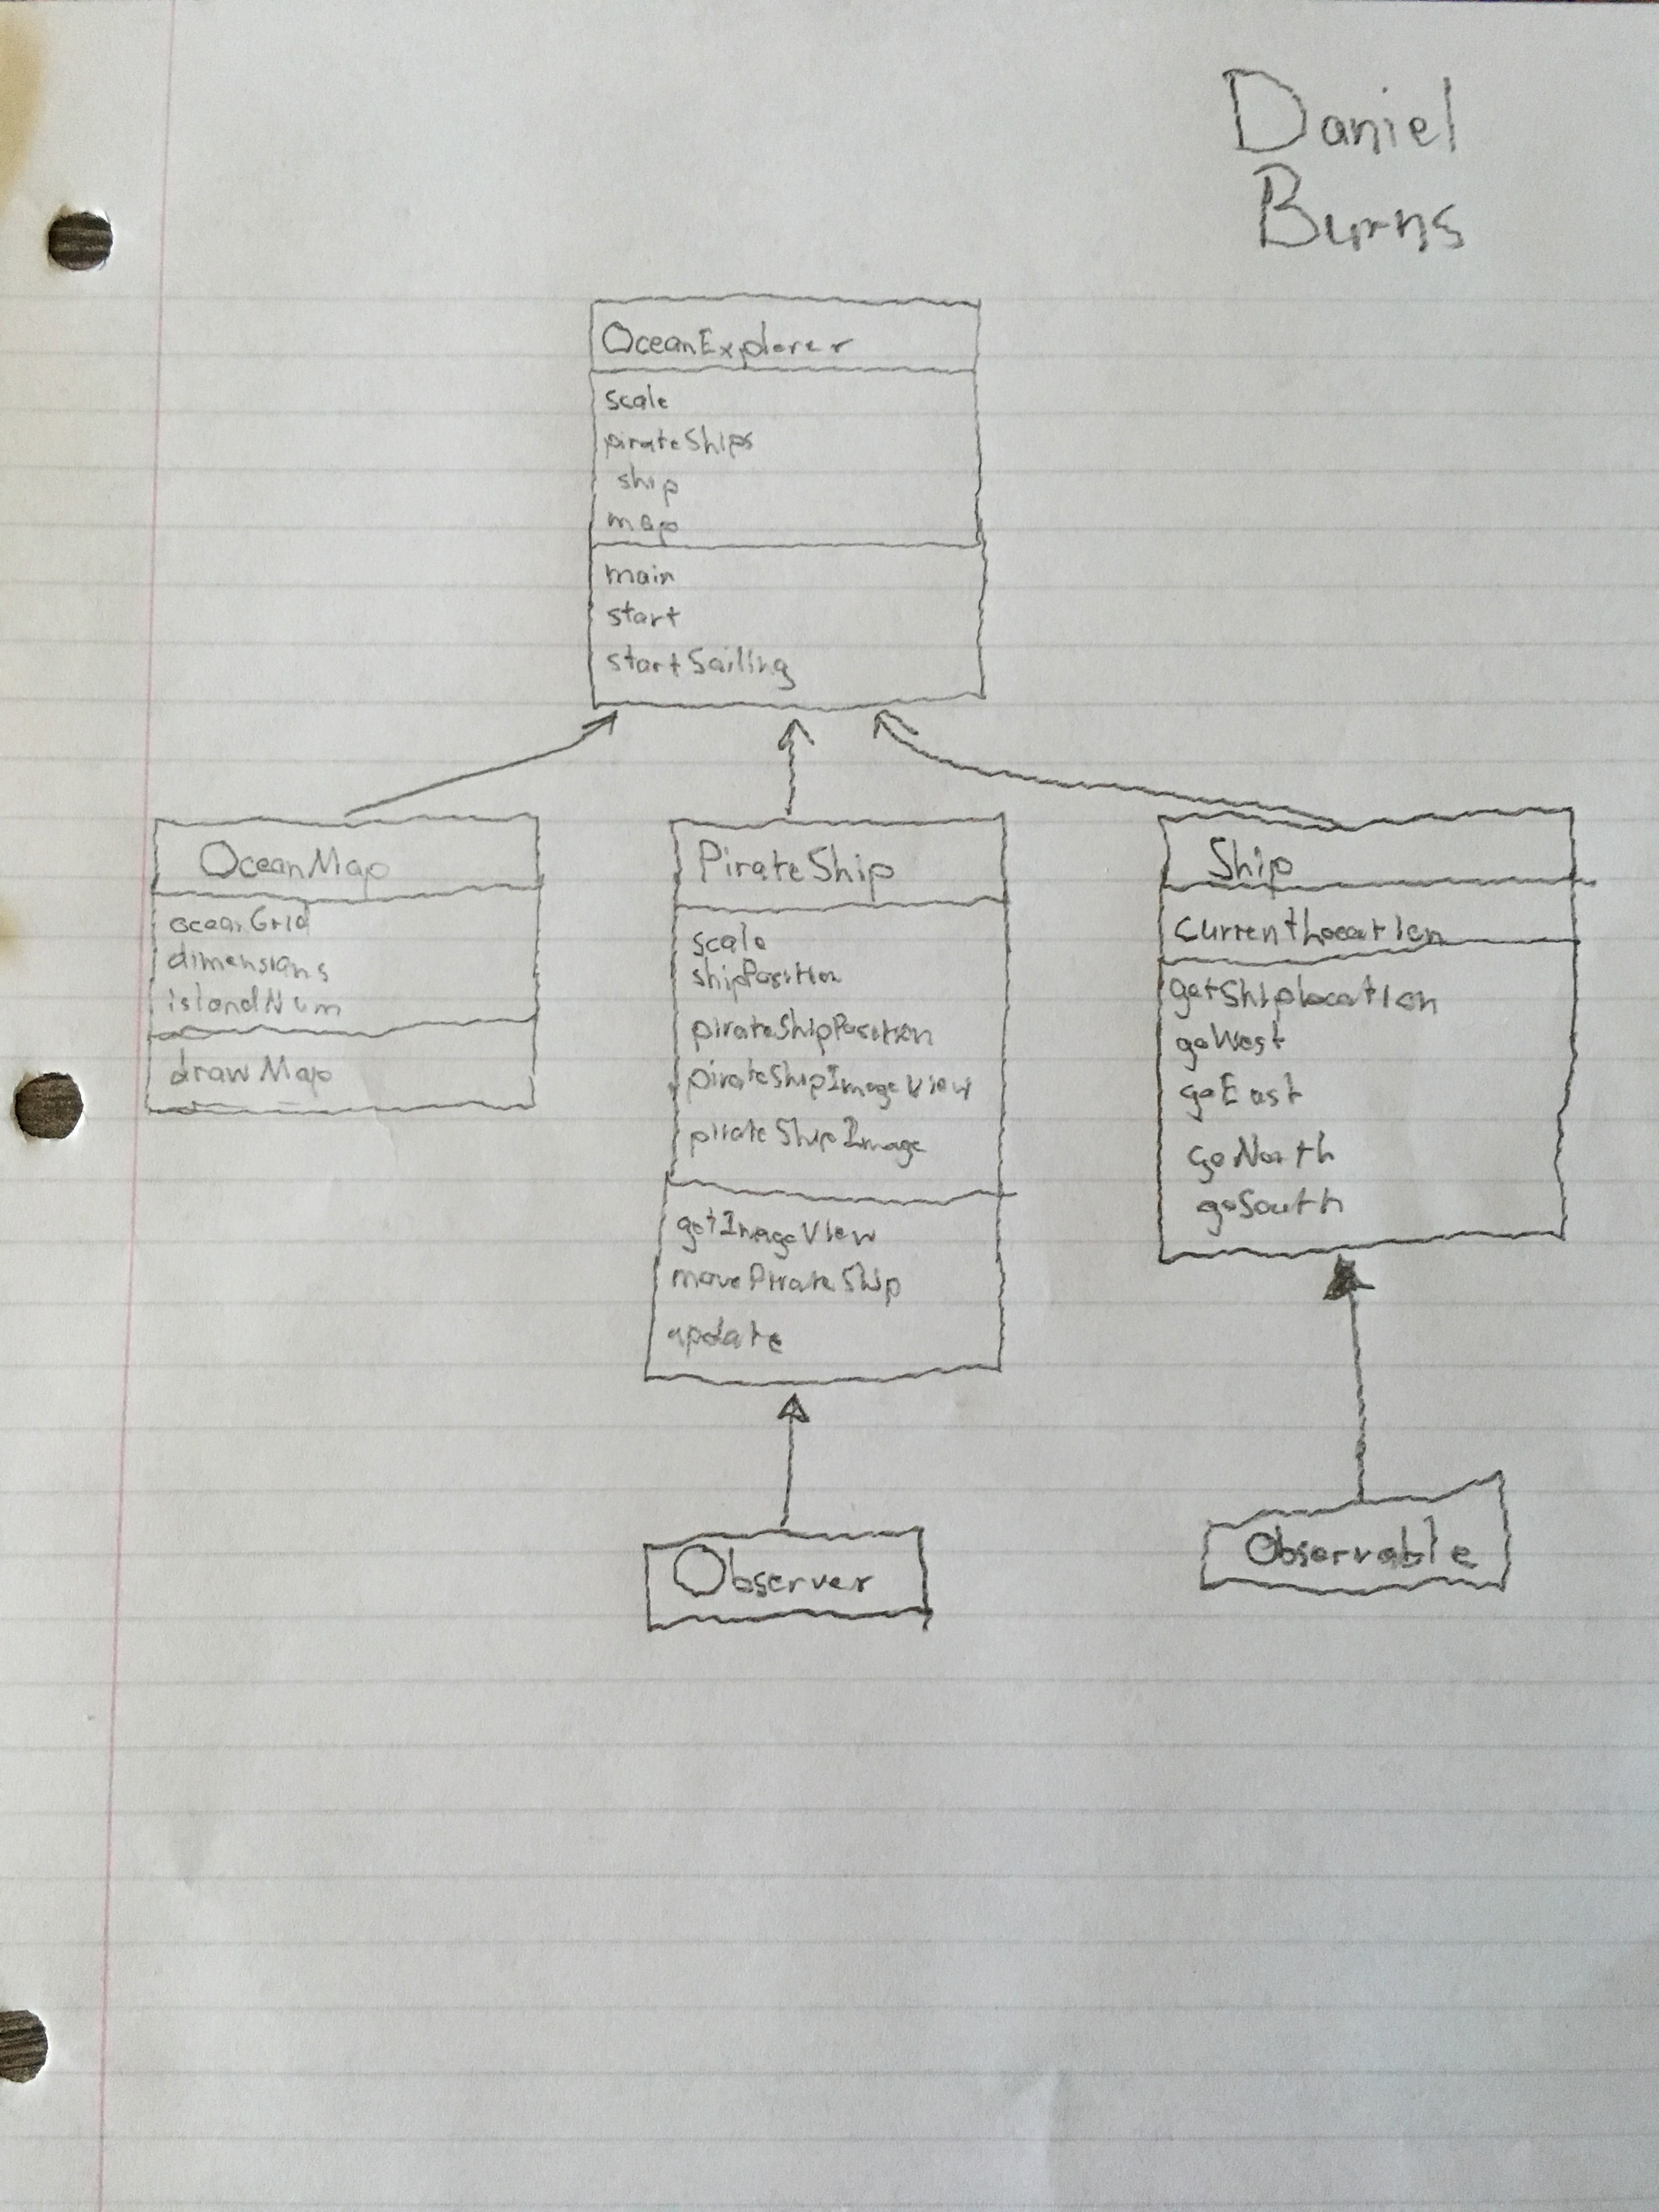 Daniel
Burns
OceanExplorer
scale
pirateShips
ship
map
main
start
startSailing
OceanMap
oceanGrid
dimensions
islandNum
drawMap
PirateShip
scale
shipPosition
pirateShipPosition
pirateShipImageView
pirateShipImage
getImageView
movePirateShip
update
Ship
currentLocation
getShipLocation
goWest
goEast
goNorth
goSouth
Observer
Observable